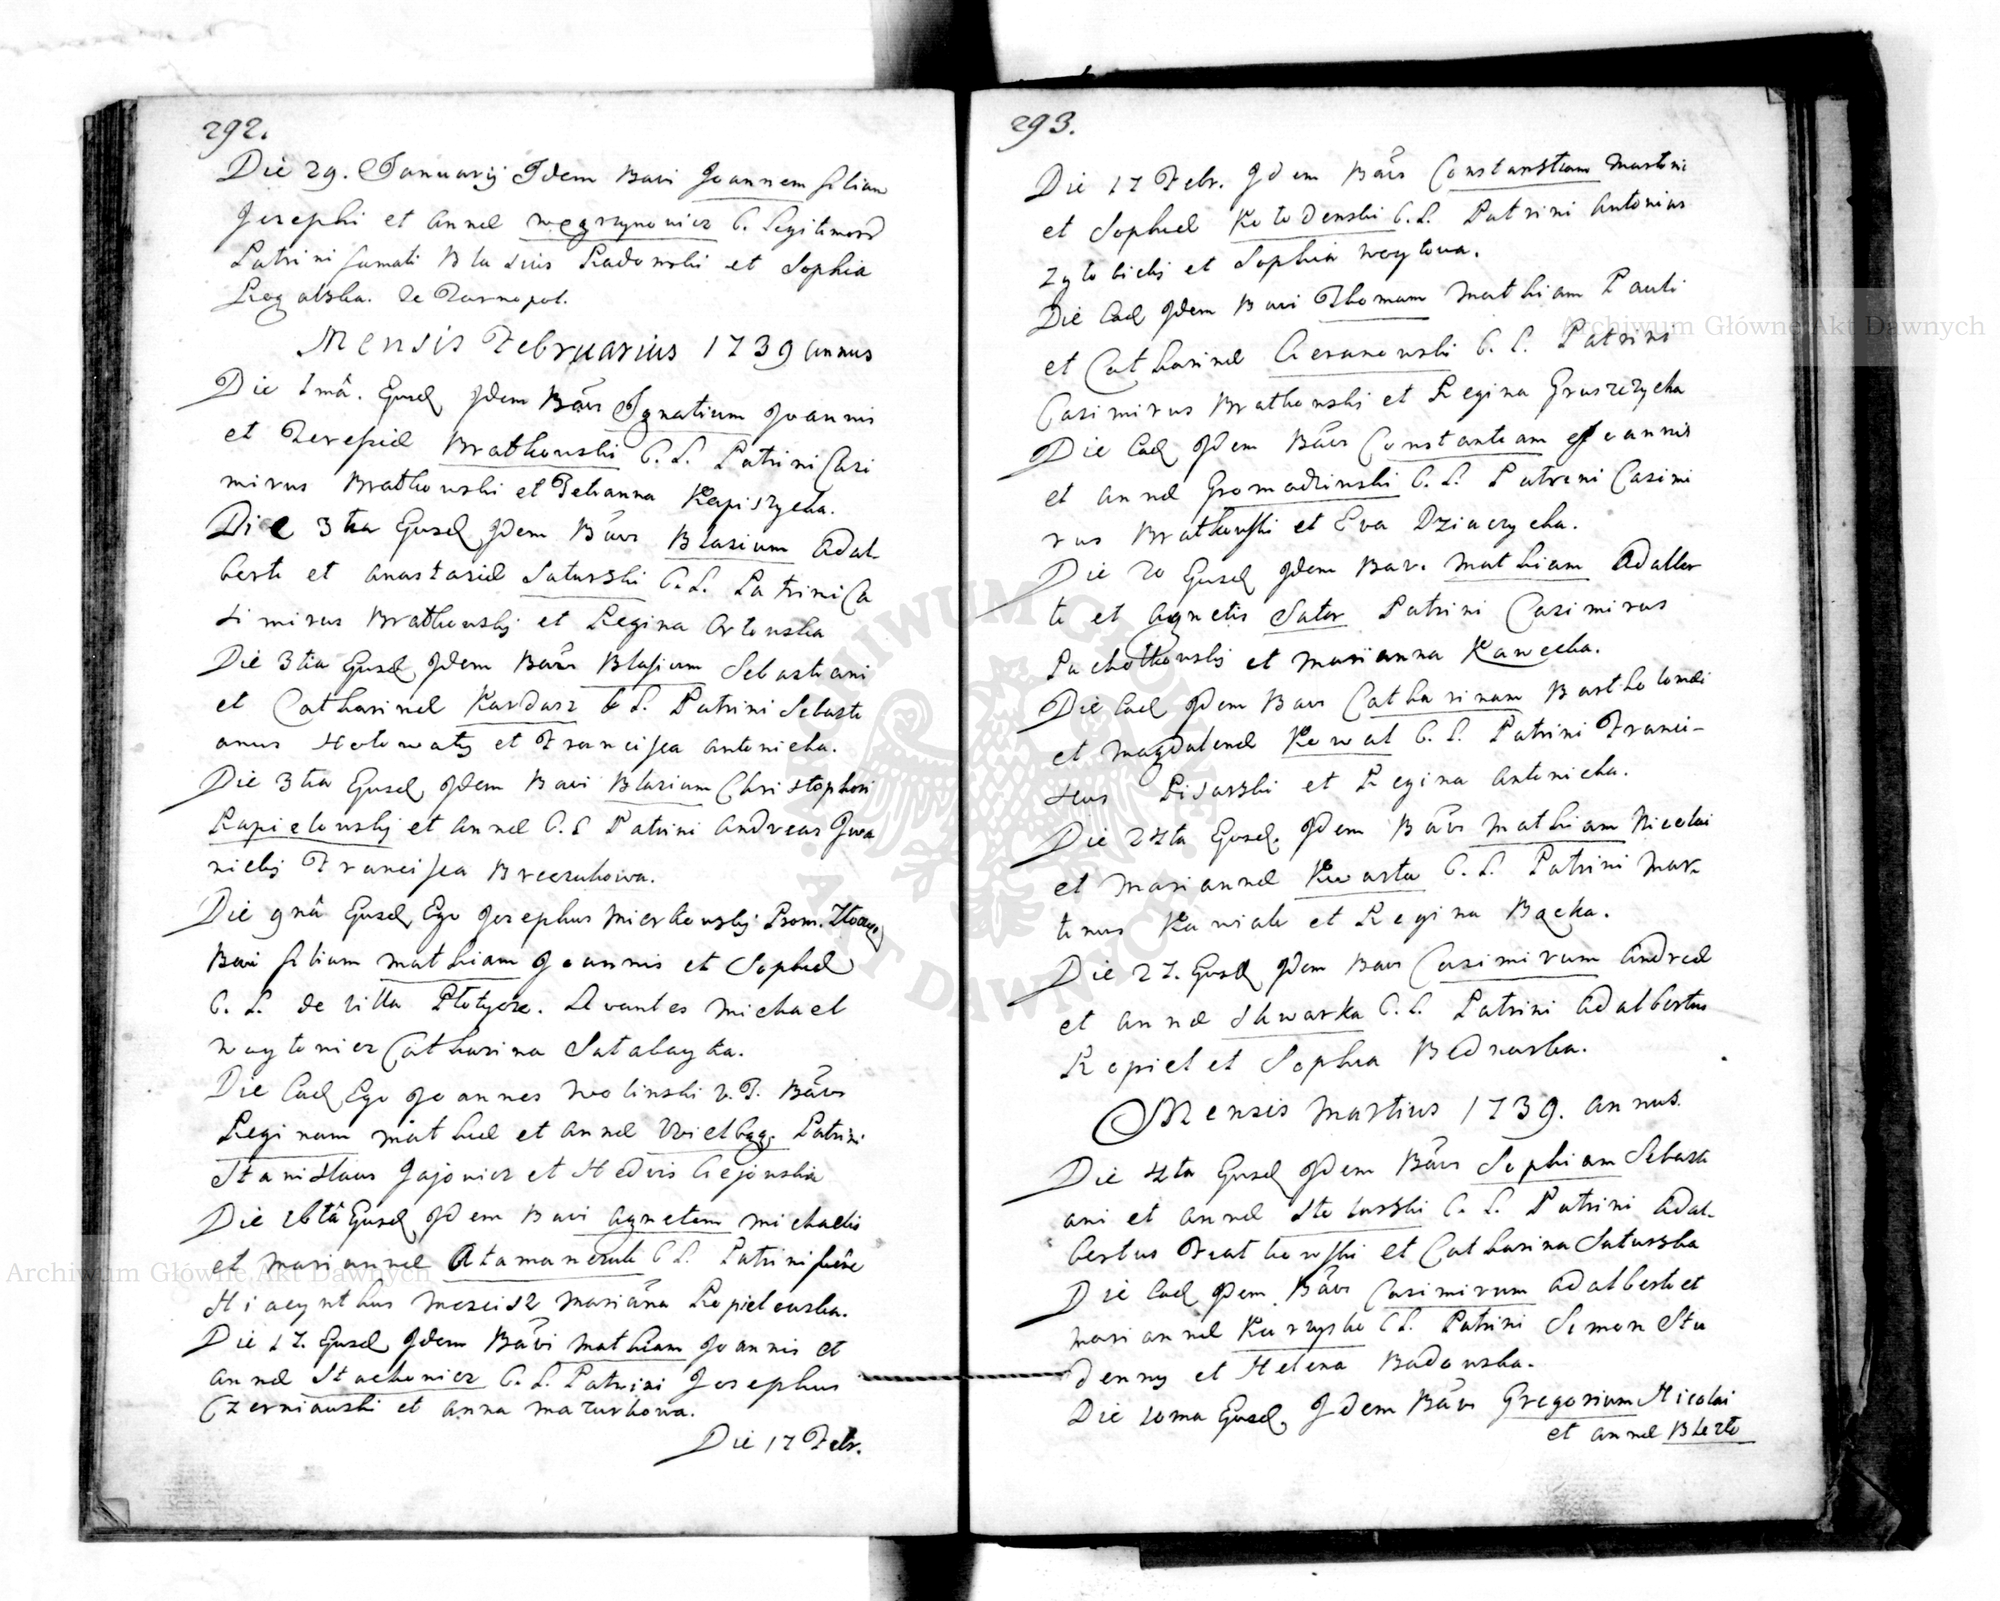 292.
Die 29. Januarij Idem Bavi Joannem filium
Josephi et Annæ Węgrzynowicz C. Legitimord
Patrini fumati Blasius Sadowski et Sophia
Rogalska. de Tarnopol.
Mensis Februarius 1739 annus
Die 1mâ. Eiusd Idem Bavi Ignatium Joannis
et Teresiæ Bratkowski C. L. Patrini Casi
mirus Bratkowski et Tetianna Kapiszycha.
Die 3tia Eiusd Idem Bavi Blasium Adal
berti et Anastasiæ Saturski C. L. Patrini Ca
simirus Bratkowskij et Regina Ortowska
Die 3tia Eiusd Idem Bavi Blasium Sebastiani
et Catharinæ Kardasz C L. Patrini Sebasti
anus Hotowatij et Francisca Antonicha.
Die 3tia Eiusd Idem Bavi Blasium Christophori
Kapielowskij et Annæ C. L Patrini Andreas Iwa
nickij Francisca Brzezuhowa.
Die 9nâ Eiusd Ego Josephus Mierkowskij Prom.
Bavi filium Mathiam Joannis et Sophiæ
C. L. de villa Płotycze. Levantes Michael
Woytowicz Catharina Satabayka.
Die Ead Ego Joannes Wolinski V. T. Bavi
Reginam Mathiæ et Annæ Patrini
Stanislaus Jajowicz et Hedvis Ciejowska
Die 16tâ Eiusd Idem Bavi Agnetem Michaelis
et Mariannæ Atamanczuk C L. Patrini fuêre
Hiacynthus Mrscisz Mariâna Kopielowska.
Die 17. Eiusd Idem Bavi Mathiam Joannis et
Annæ Stachowicz C. L. Patrini Josephus
Czerniawski et Anna Mazurkowa.
Die 17 Febr.
293.
Die 17 Febr. Idem Bavi Constantiam Martini
et Sophiæ Kołodenski C. L. Patrini Antonius
Zytobickij et Sophia Woytowa.
Die Ead Idem Bavi Thomam Mathiam Pauli
et Catharinæ Cieranowski C. L. Patrini
Casimirus Bratkowskij et Regina Gruszczycha
Die Ead Idem Bavi Constantiam Joannis
et Annæ Gromadzinski C. L. Patrini Casimi
rus Bratkowski et Eva Dziaczycha.
Die 20 Eiusd Idem Bav. Mathiam Adalber
ti et Agnetis Sator Patrini Casimirus
Pachołkowskij et Marianna Kawecka.
Die Ead Idem Bavi Catharinam Bartholomæi
et Magdalenæ Kowal C. L. Patrini Franci-
scus Pisarski et Regina Antonicha.
Die 24ta Eiusd. Idem Bavi Mathiam Nicolai
et Mariannæ Kwarta C. L. Patrini Mar
tinus Kawiak et Regina Bącka.
Die 27. Eiusd Idem Bavi Casimirum Andreæ
et Annæ Skwarka C. L. Patrini Adalbertus
Kopiel et Sophia Bednarka.
Mensis Martius 1739. annus.
Die 4ta Eiusd Idem Bavi Sophiam Sebasti
ani et Annæ Stolarski C. L. Patrini Adal-
bertus Bratkowski et Catharina Saturska
Die Ead Idem Bavi Casimirum Adalberti et
Mariannæ Kurzysko C L. Patrini Simon Stu
denny et Helena Badowska.
Die 10ma Eiusd Idem Bavi Gregorium Nicolai
et Annæ
Archiwum Główne Akt Dawnych
Archiwum Główne Akt Dawnych
ARCHIWUM GŁÓWNE AKT DAWNYCH